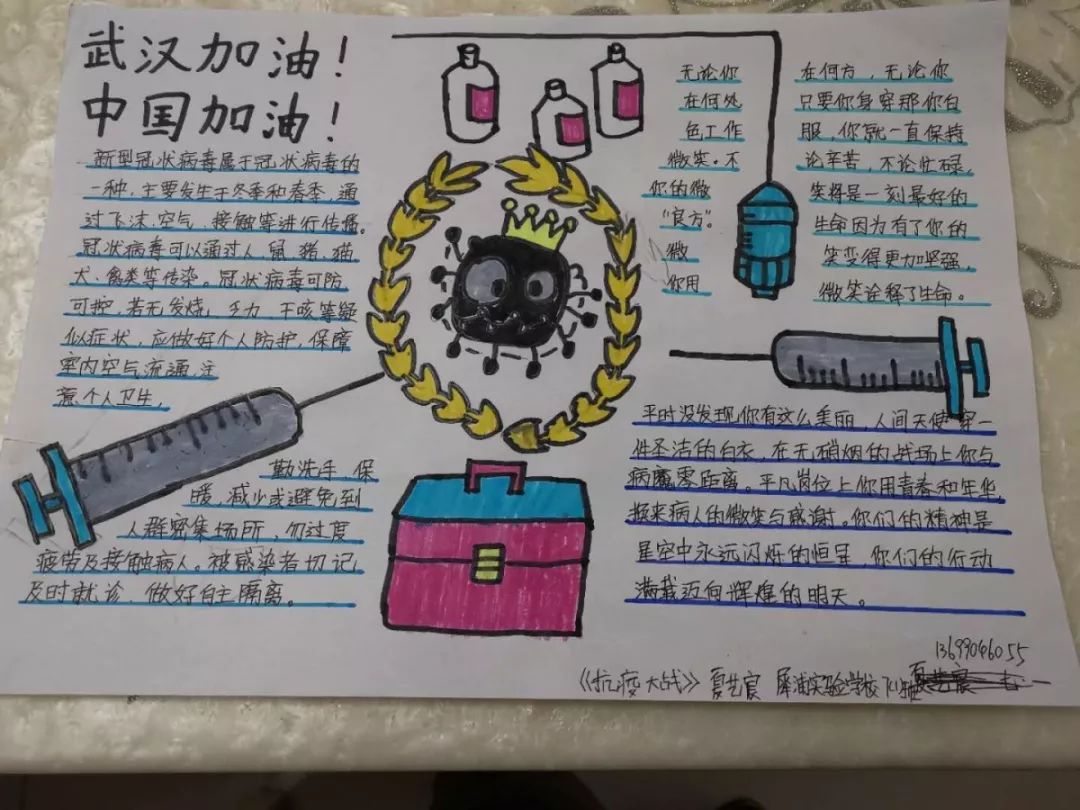 武汉加油！
中国加油！
新型冠状病毒属于冠状病毒的
一种，主要发生于冬季和春季，通
过飞沫、空气、接触等进行传播。
冠状病毒可以通过人、鼠、猪、猫
犬、禽类等传染。冠状病毒可防
可护，若无发烧、乏力、干咳等疑
似症状，应做好个人防护，保障
室内空气流通，注
意个人卫生，
勤洗手、保
暖，减少或避免到
人群密集场所，勿过度
疲劳及接触病人。被感染者切记
及时就诊，做好自主隔离。
无论你 在何方，无论你
在何处 只要你身穿那你白
色工作 服，你就一直保持
微笑。不 论辛苦，不论忙碌，
你的微 笑将是一刻最好的
“良方”。 生命因为有了你的
微 笑变得更加坚强，
你用 微笑诠释了生命。
平时没发现，你有这么美丽，人间天使穿一
件圣洁的白衣，在无硝烟的战场上你与
病魔零距离。平凡岗位上你用青春和年华，
换来病人的微笑与感谢。你们的精神是
星空中永远闪烁的恒星，你们的行动
满载迈向辉煌的明天。
13699046055
《抗疫大战》 夏艺宸 犀浦实验学校